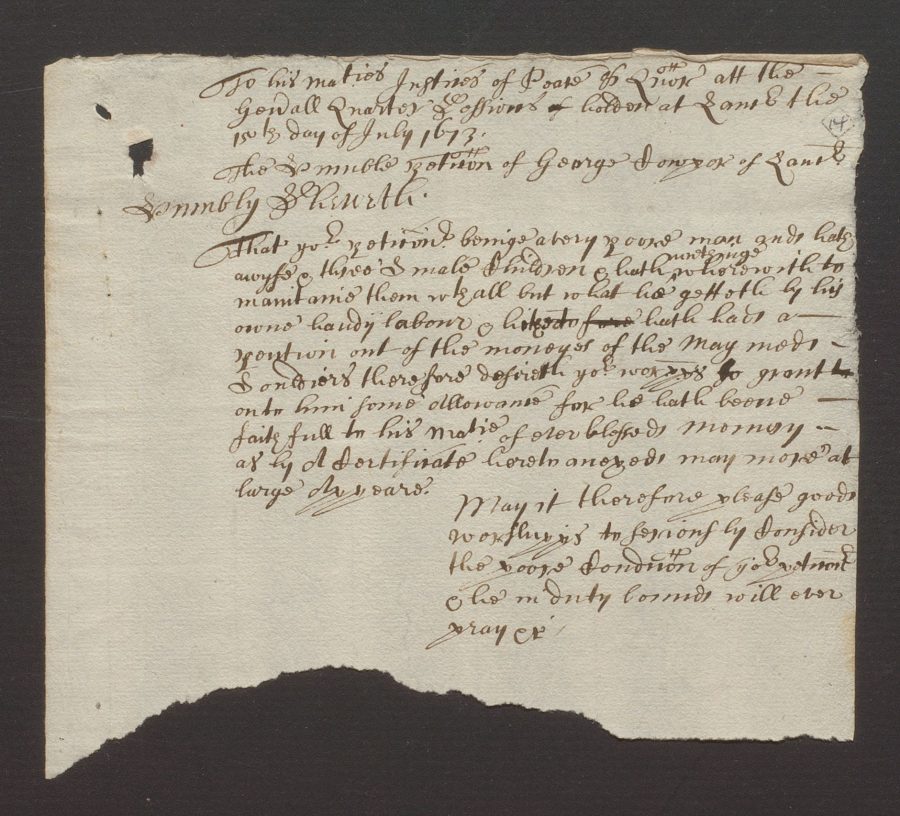 To his ma:ties Justices of Peace & Quor: att the —
Gen:all Quarter Sessions holden at Lanc: the
15th day of July 1673.
14
The Humble Peticon of George Cowper of Lanc:
Humbly Sheweth.
That yor: Peticon:r beinge a very poore man and hath
a wyfe & three smale Children & hath nothinge wherewith to
maintaine them wthall but what hee getteth by his
owne handy labour & hath had a —
pention out of the moneyes of the Maymed —
Souldiers therefore desireth yor: worpps to grant
onto him some Allowance for he hath beene —
faithfull to his Matie of ever blessed memory —
as by A Certificate hereto anexed may more at
large Appeare.
May it therefore please good
worshipps to seriously Consider
the poore Condicon of yor: peticonr:
& he in duty bound will ever
pray &c